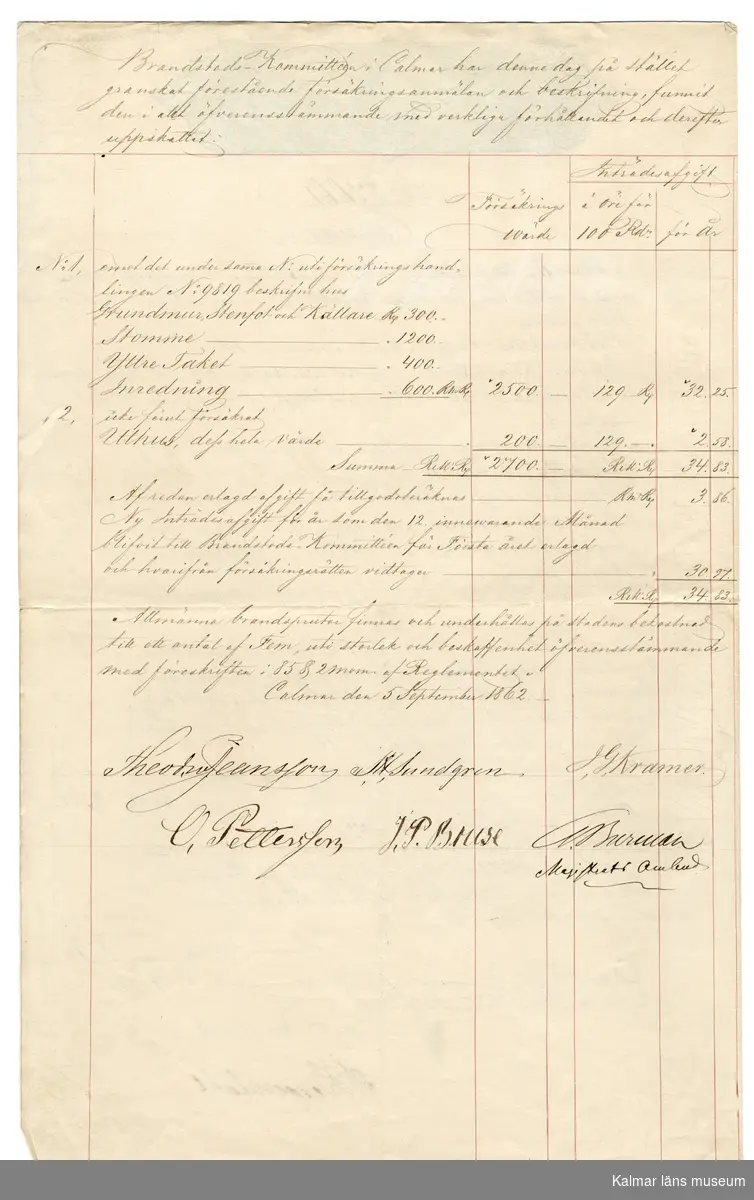 Brandstods-Kommittéen i Calmar har denne dag på stället
granskat förestående försäkringsanmälan och beskrifning, funnit
den i allt öfverensstämmande med verkliga förhållandet och derefter
uppskattat:
Inträdesafgift
Försäkrings
wärde
á öre för
100 Rdr
för år
No: 1, emot det under sama No: uti försäkringshand-
lingen No: 9819 beskrifne hus
Grundmur, Stenfot och Källare Rd 300.-
Stomme 1200.-
Yttre Taket 400.-
Inredning 600. Rmt Rd 2500. 129 Rd 32. 25.
" 2, icke förut försäkrat
Uthus, dess hela värde 200 129. 2. 58.
Summa Rmt Rd 2700. Rmt Rd 34. 83.
Af redan erlagd afgift få tillgodoberäknas Rmt Rd 3. 86.
Ny Inträdesafgift för år som den 12 innewarande Månad
blifvit till Brandstods-Kommittéen för Första året erlagd
och hvarifrån försäkringsrätten vidtager 30. 97.
Rmt Rd 34. 83.
Allmänna brandsprutor finnas och underhållas på stadens bekostnad
till ett antal af Fem, uti storlek och beskaffenhet öfverensstämmande
med föreskriften i § 58, 2 mom: af Reglementet.
Calmar den 5 September 1862
Theodor Jeansson Sundgren J, G, Kramer.
O, Pettersson J, P. Bruse Burman
Magistrats Ombud
Kalmar läns museum